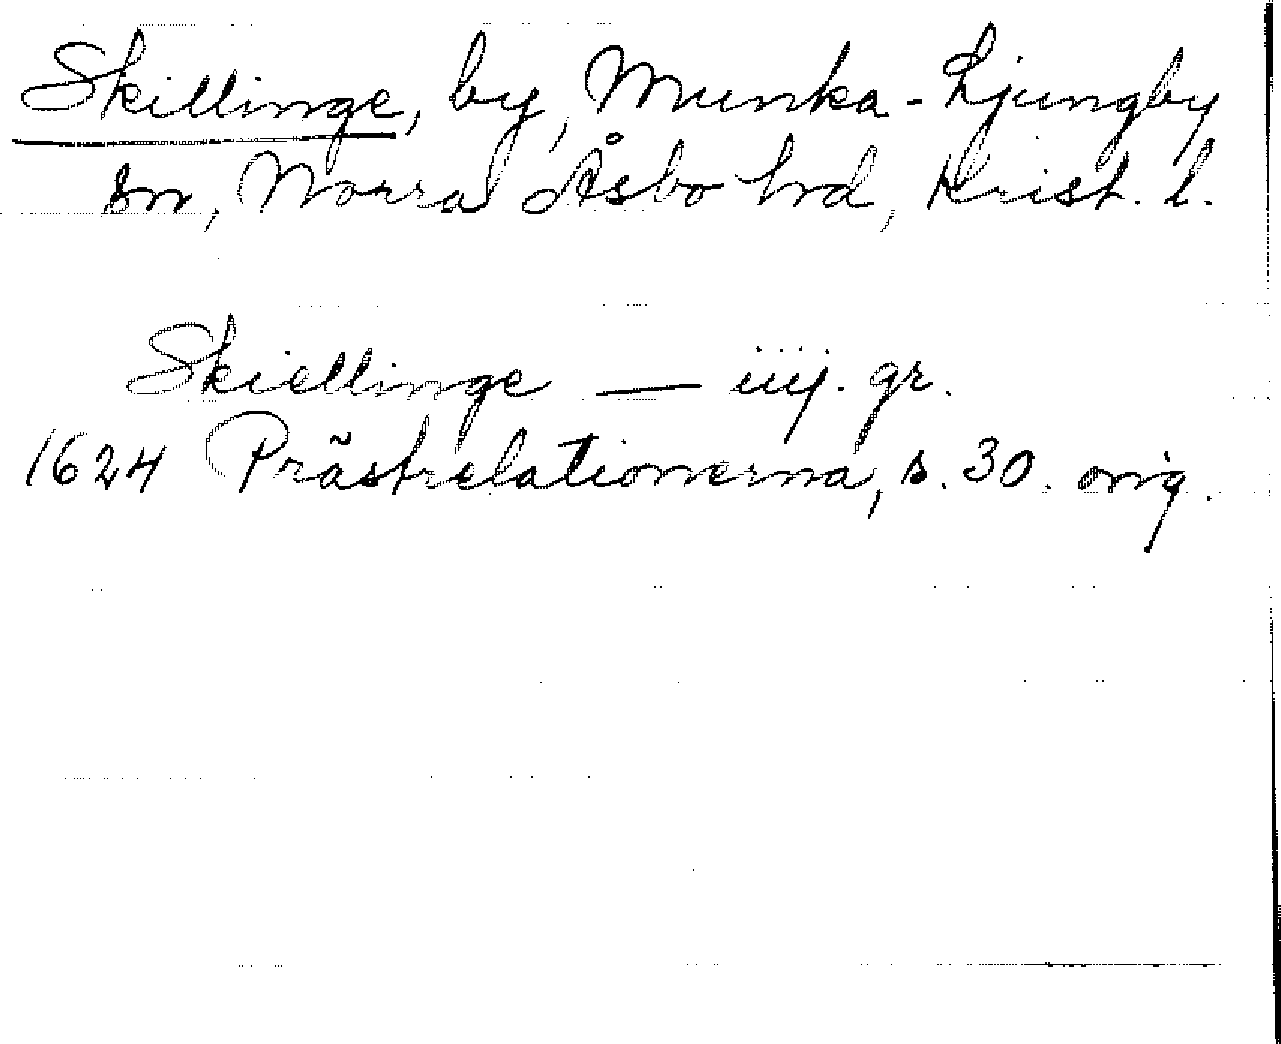 Skillinge, by, Munka-Ljungby
sn, Norra Åsbo hrd, Krist. l.
Skiellinge — iiij. gr.
1624 Prästrelationerna, s. 30. orig.